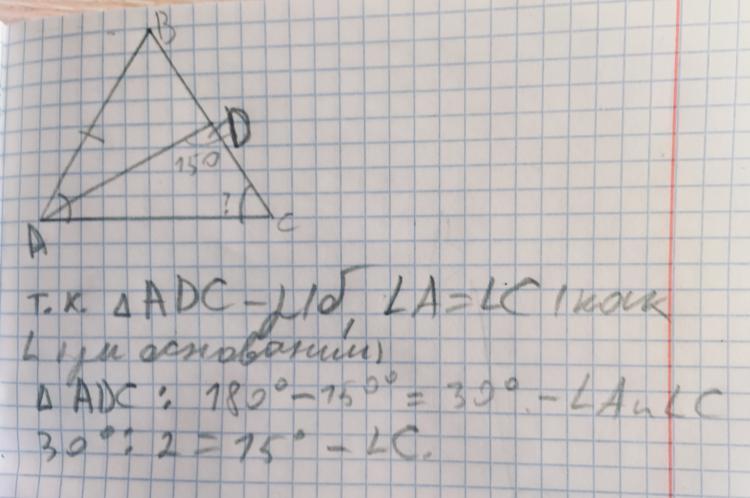 B
D
150
?
A
C
т.к. △ADC – р/б, ∠A = ∠C (как
∠ при основании)
△ ADC: 180° – 150° = 30° – ∠A и ∠C
30° : 2 = 15° – ∠C.